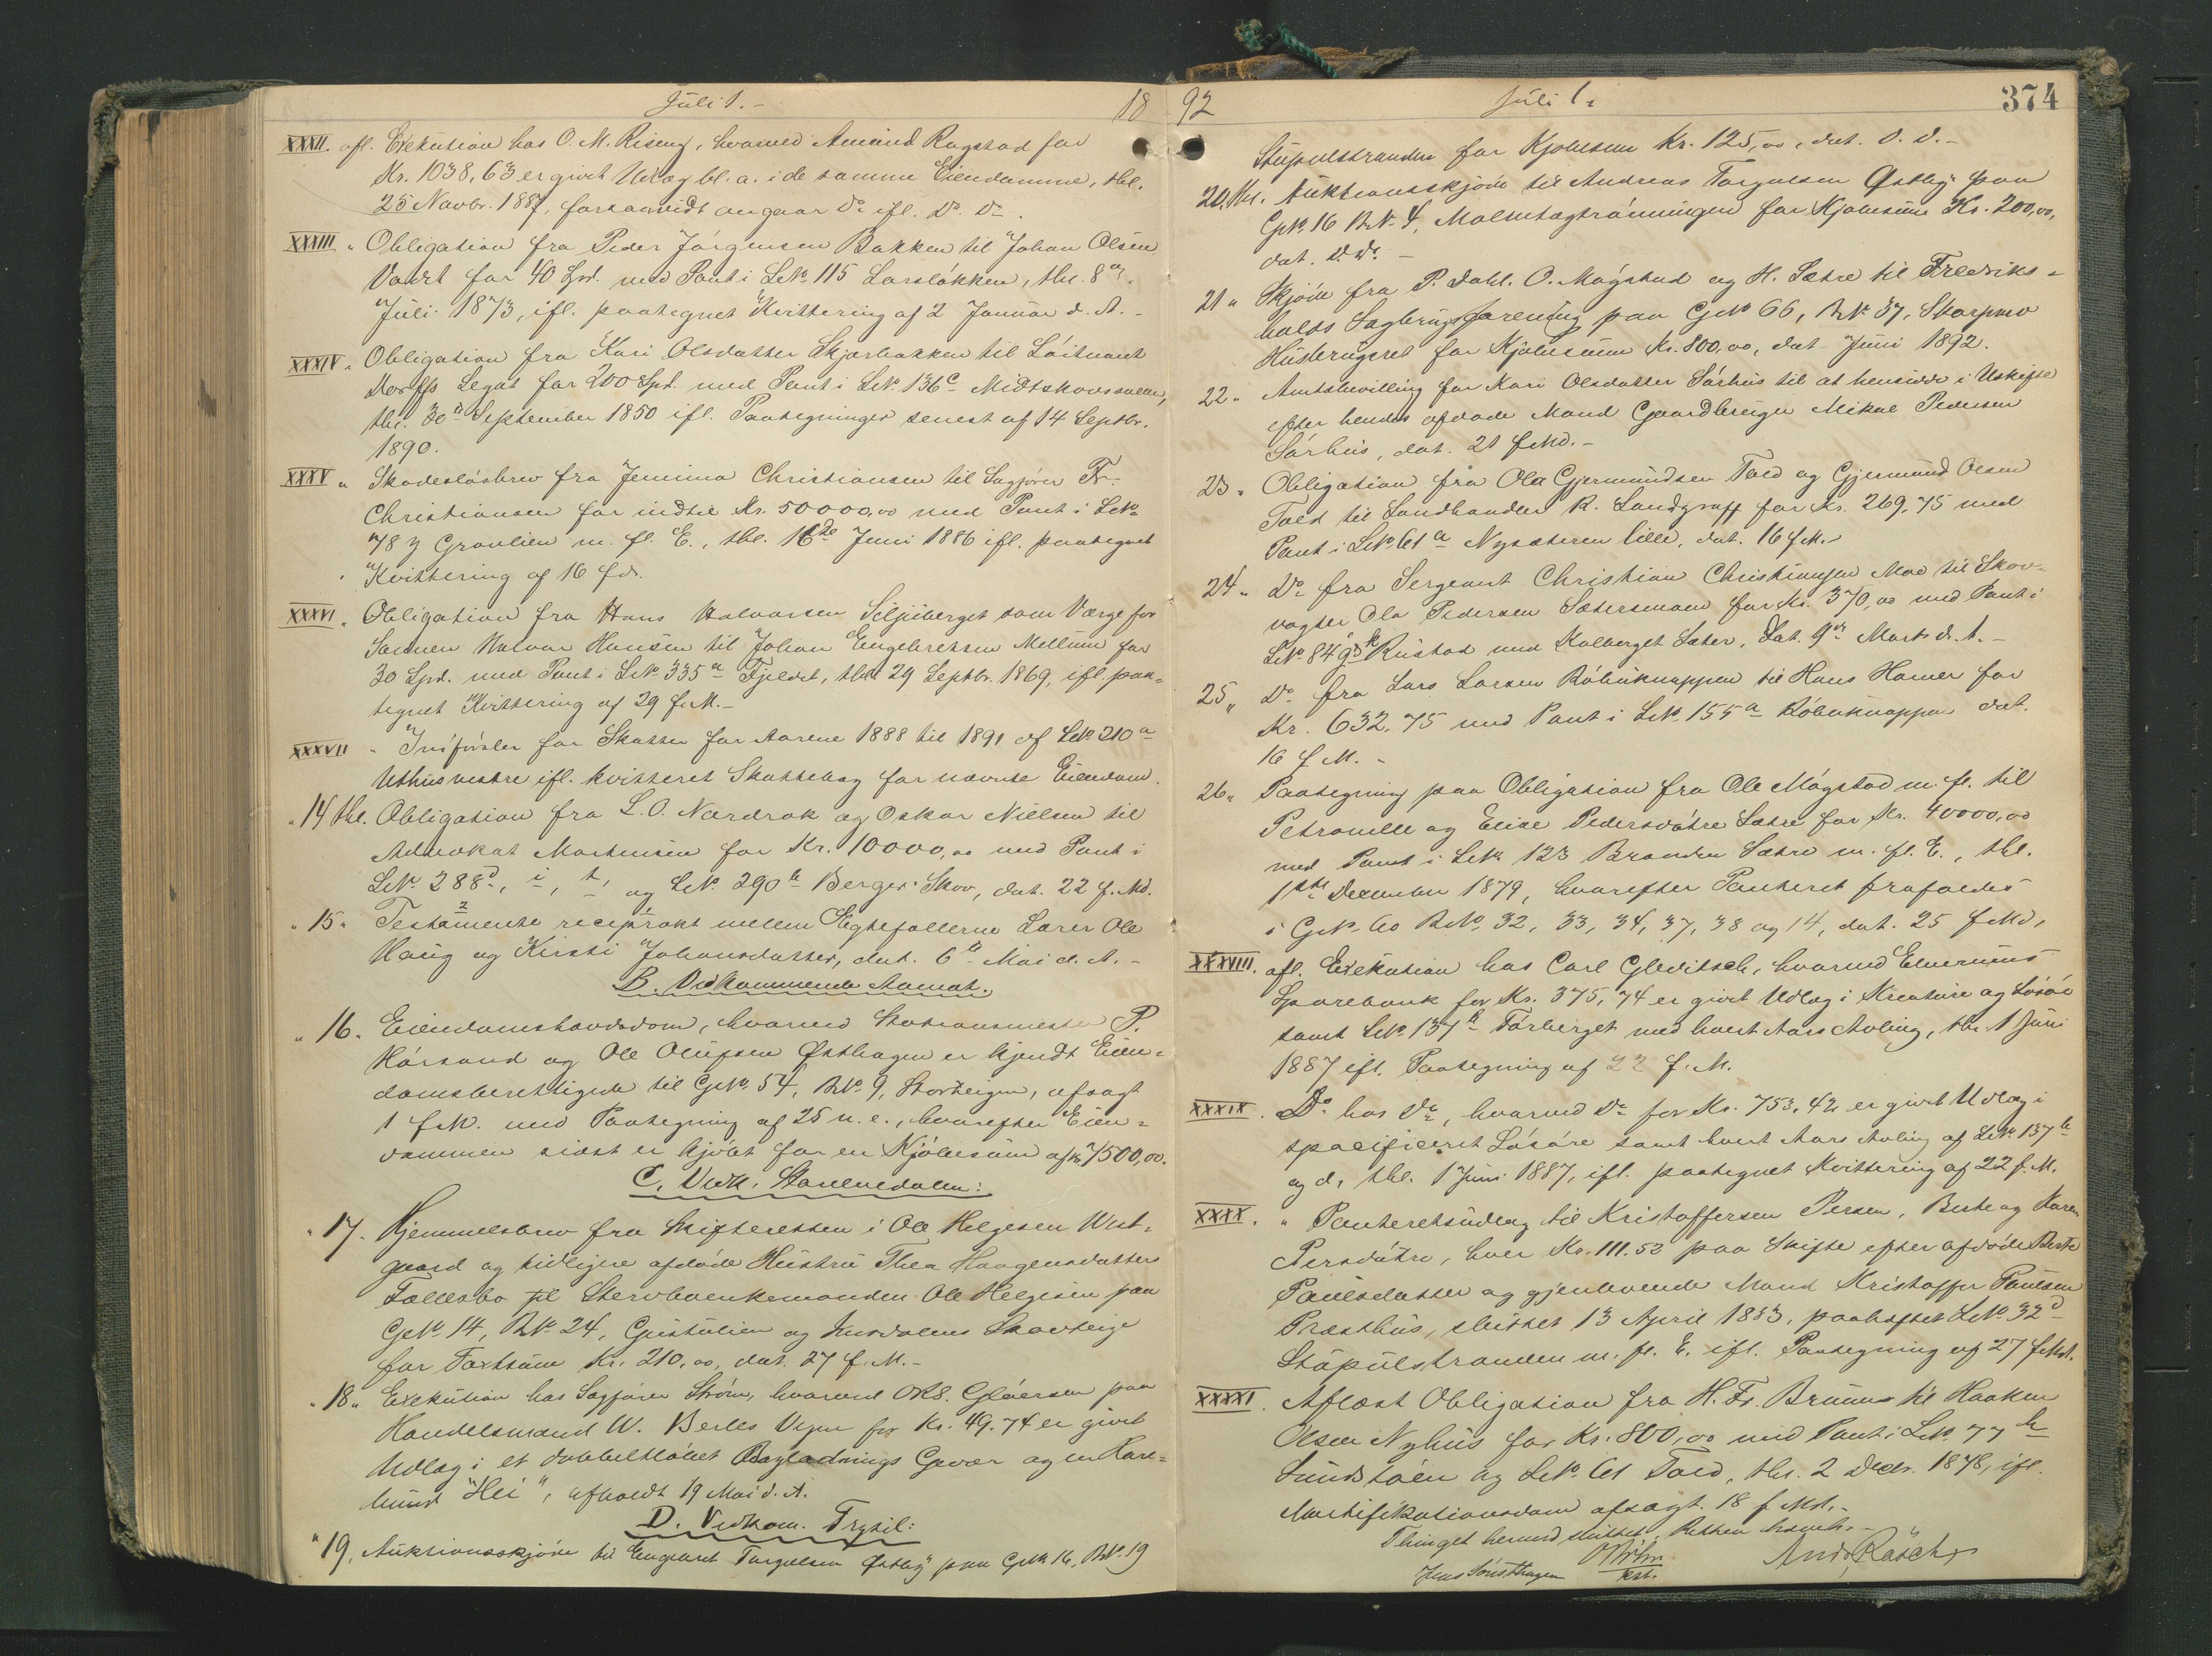 Juli 1. - 18
XXXII. afl. Exekution hos O. M. Riseng, hvorved Amund Rugstad for
Kr. 1038,63 er givet Udlæg bl. a. i de samme Eiendomme, thl.
25 Novbr. 1887, forsaavidt angaar Do ifl. Do. Do.
XXXIII " Obligation fra Peder Jörgensen Bakken til Johan Olsen
for 40 Spd. med Pant i LNo. 115 Larslökken, thl. 8de
Juli 1873, ifl. paategnet Kvittering af 2 Januar d. A. -
XXXIV " Obligation fra Kari Olsdatter Skjærbakken til Löitnant
Legat for 200 Spd. med Pant i LNo. 136c Midtskovs
thl. 30te September 1850 ifl. Paategninger senest af 14 Septbr.
1890.
XXXV " Skadeslösbrev fra Jemima Christiansen til Sagförer Fr.
Christiansen for indtil Kr. 50000,00 med Pant i LNo
78 y Graalien m. fl. E., thl. 16de Juni 1886 ifl. paategnet
Kvittering af 16 f. M.
XXXVI " Obligation fra Hans Halvorsen Siljuberget som Værge for
Sönnen Halvor Hansen til Johan Engebretsen Mellum for
30 Spd. med Pant i LNo. 335a Fjeldet, thl. 29 Septbr. 1869, ifl. paa-
tegnet Kvittering af 29 f. M. -
XXXVII " Indförsler for Skatter for Aarene 1888 til 1891 af LNo 210a
Uthus vestre ifl. kvitteret Skattebog for nævnte Eiendom.
" 14 thl. Obligation fra L. O. Nordrok og Oskar Nielsen til
Advokat Mortensen for Kr. 10000,00 med Pant i
LNo. 288d, i, t, og LNo. 290b Berger Skov, dat. 22 f. Md.
" 15 " Testamente reciprokt mellem Egtefollerne Lærer Ole
Haug og Kirsti Johansdatter, dat. 6te Mai d. A. -
B. Vedkommende Aamot.
" 16. Eiendomshævdsdom, hvorved Stationsmester P.
Hörsand og Ole Olufsen Østhagen er kjendt Eien-
domsberettigede til GNo. 54, BNo. 9, Storteigen, afsagt
1 f. M. med Paategning af 25 n. e., hvorefter Eien-
dommen sidst er kjöbt for en Kjöbesum af Kr 7500,00.
C. Vedk. Storelvedalen:
" 17. Hjemmelsbrev fra Skifteretten i Ole Helgesen West-
gaard og tidligere afdöde Hustru Thea Haagensdatters
Fællesbo til Stervboenkemanden Ole Helgesen paa
GNo. 14, BNo. 24, Gustulien og Skovteige
for Taxtsum Kr. 210,00, dat. 27 f. M. -
" 18 " Exekution hos Sagförer Ström, hvorved O. R. S. Gläersen paa
Handelsmand W. Berles Vegne for Kr. 49.74 er givet
Udlæg i et dobbeltlöbet Bagladnings Gevær og en Hare-
hund "Hei", afholdt 19 Mai d. A.
D. Vedkom. Trysil:
" 19. Auktionsskjöde til Engebret Torgalsen Østby paa GNo 16, BNo. 19
92 Juli 1. 374
Stöpulstranden for Kjöbesum Kr. 125,00, dat. D. D. -
20. thl. Auktionsskjöde til Andreas Torgalsen Østby paa
GNo. 16 BNo. 4, for Kjöbesum Kr. 200,00,
dat. D. D. -
21 " Skjöde fra P. Dahl. O. Mögstad og H. Sætre til Fredriks-
halds Sagbrugsforening paa GNo 66, BNo 37, Skarpmo
Husbrugeret for Kjöbesum Kr. 800,00, dat Juni 1892.
22 " Amtsbevilling for Kari Olsdatter Sörhus til at hensidde i Uskifte
efter hendes afdöde Mand Gaardbruger Mikael Pedersen
Sörhus, dat. 21 f. Md. -
23 " Obligation fra Ola Gjermundsen Tald og Gjermund Olsen
Tald til Landhandler R. Landgraff for Kr. 269,75 med
Pant i LNo. 61a Nysæteren lille, dat. 16 f. M. -
24 " Do fra Sergeant Christian Christiansen Moe til Skov-
vogter Ola Pedersen Sætersmoen for Kr. 370,00 med Pant i
LNo. 84 Rustad med Kolberget Sæter, dat. 9de Marts d. A. -
25 " Do. fra Lars Larsen Röbuknappen til Hans Hamer for
Kr. 632.75 med Pant i LNo. 155a Röbuknappen dat.
16 f. M. -
26 " Paategning paa Obligation fra Ole Mögstad m. fl. til
Petronille og Elise Pedersdötre Sætre for Kr. 40000,00
med Pant i LNo. 123 Branden Sætre m. fl. E., thl.
1ste December 1879, hvorefter Panteret frafaldes
i GNo. 60 BNo. 32, 33, 34, 37, 38 og 14, dat. 25 f. Md.
XXXVIII. afl. Exekution hos Carl Gleditsch, hvorved Elverums
Sparebank for Kr. 375,74 er givet Udlæg i Kreature og Lösöre
samt LNo. 137b Törberget med hvert Aars Avling, thl. 1 Juni
1887 ifl. Paategning af 22 f. M.
XXXIX. Do. hos Do, hvorved Do for Kr. 753,42 er givet Udlæg i
specificeret Lösöre samt hvert Aars Avling af LNo. 137b
og d, thl. 1 Juni 1887, ifl. paategnet Kvittering af 22 f. M.
XXXX. " Panteretsudlæg til Kristoffersen Persen, Berte og Karen
Persdötre, hver Kr. 111.52 paa Skifte efter afdöde Berte
Paulsdatter og gjenlevende Mand Kristoffer Paulsen
Præsthus, sluttet 13 April 1883, paaheftet LNo. 32d
Stöpulstranden m. fl. E. ifl. Paategning af 27 f. Md.
XXXXI. Aflæst Obligation fra H. Fr. Bruuns til Haaken
Olsen Nyhus for Kr. 800,00 med Pant i LNo. 77b
Sundstöen og LNo. 61 Tald, thl. 2 Decbr. 1878, ifl.
Mortifikationsdom afsagt 18 f. Md. -
Thinget hermed sluttet. Retten hævet. -
Andr. Rasch